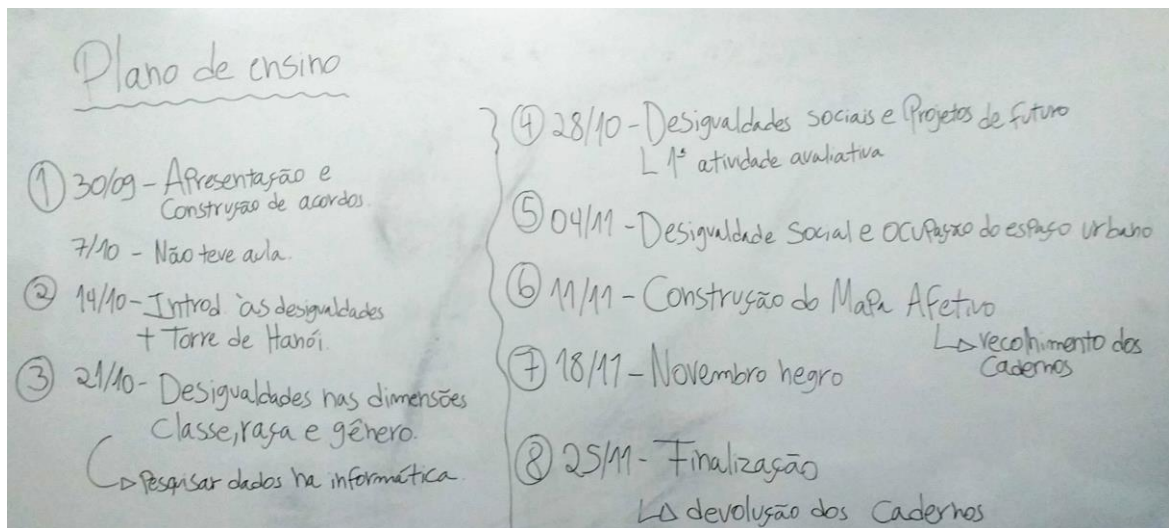 Plano de ensino
① 30/09 - Apresentação e
Construção de acordos.
7/10 - Não teve aula.
② 14/10 - Introd. às desigualdades
+ Torre de Hanói.
③ 21/10 - Desigualdades nas dimensões
Classe, raça e gênero.
↳ Pesquisar dados na informática.
④ 28/10 - Desigualdades sociais e Projetos de futuro
↳ 1ª atividade avaliativa
⑤ 04/11 - Desigualdade Social e ocupação do espaço urbano
⑥ 11/11 - Construção do Mapa Afetivo
↳ recolhimento dos
Cadernos
⑦ 18/11 - Novembro negro
⑧ 25/11 - Finalização
↳ devolução dos Cadernos